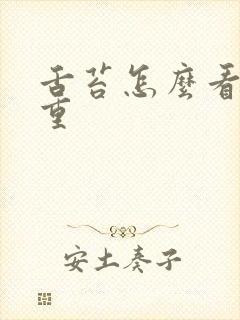 舌苔怎麼看
重
安土奏子